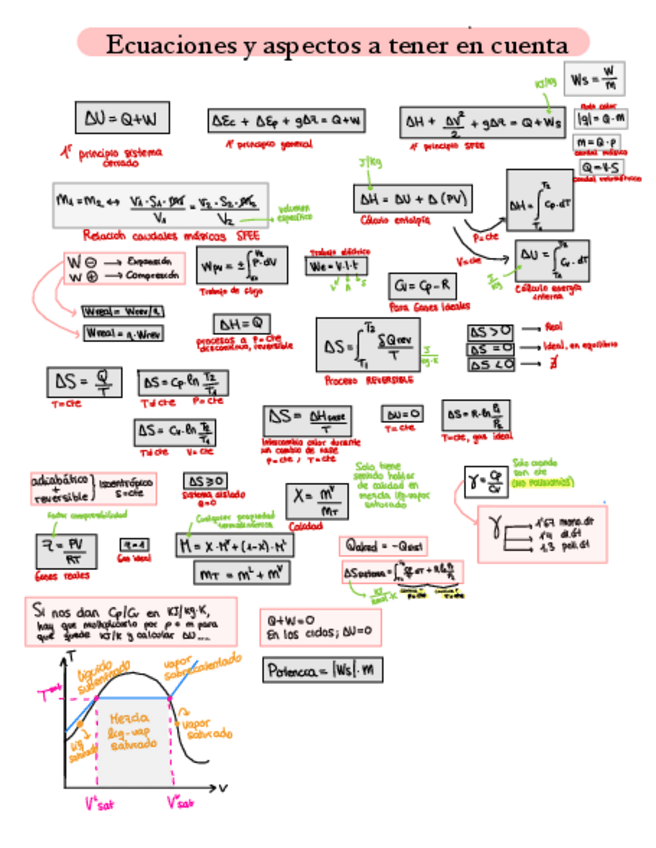 Ecuaciones y aspectos a tener en cuenta
Ws = W/m
KJ/kg
ΔU = Q+W
1er principio sistema cerrado
ΔEc + ΔEp + gΔz = Q+W
1er principio general
ΔH + ΔV²/2 + gΔz = Q+Ws
1er principio SPEE
|q| = Q·m
m = Q·ρ
caudal másico
Q = V·S
caudal volumétrico
J/kg
M1=M2 ↔ V1·S1·m1/V1 = V2·S2·m2/V2
volumen específico
Relación caudales másicos SPEE
ΔH = ΔU + Δ(PV)
Cálculo entalpía
P=cte
V=cte
ΔH = ∫T1 T2 Cp·dT
ΔU = ∫T1 T2 Cv·dT
J/kg
Cálculo energía interna
W ⊖ → Expansión
W ⊕ → Compresión
Wpv = ±∫V1 V2 P·dV
Trabajo de flujo
Trabajo eléctrico
We = V·I·t
V A s
Cv = Cp-R
Para Gases Ideales
Wreal = Wrev/η
Wreal = η·Wrev
ΔH = Q
procesos a P=cte
discontinuo, reversible
ΔS = ∫T1 T2 δQrev/T
J/kg·K
Proceso REVERSIBLE
ΔS > 0 → Real
ΔS = 0 → Ideal, en equilibrio
ΔS < 0 → ∄
ΔS = Q/T
T=cte
ΔS = Cp·ln T2/T1
T≠cte P=cte
ΔS = Cv·ln T2/T1
T≠cte V=cte
ΔS = ΔHfase/T
Intercambio calor durante
un cambio de fase
P=cte, T=cte
ΔU=0
T=cte
ΔS = R·ln P1/P2
T=cte, gas ideal
adiabático + reversible } Isoentrópico S=cte
ΔS ≥ 0
sistema aislado
Q=0
X = mV/mT
Calidad
Solo tiene
sentido hablar
de calidad en
mezcla líq-vapor
saturado
γ = Cp/Cv
Solo cuando
son cte
γ
1'67 mono.at
1'4 di.at
1,3 poli.at
Factor compresibilidad
Z = PV/RT
Gases reales
Z = 1
Gas ideal
Cualquier propiedad
termodinámica
M = X·MV + (1-X)·ML
mT = mL + mV
Qalred = -Qsist
KJ/kmol·K
Si nos dan Cp/Cv en KJ/kg·K,
hay que multiplicarlo por ρ + m para
que quede KJ/K y calcular ΔU...
Q+W=0
En los ciclos; ΔU=0
Potencia = |Ws|·m
T
Tsat
líquido subenfriado
vapor sobrecalentado
Mezcla
líq-vap
saturado
líq saturado
vapor saturado
VL sat
VV sat
V